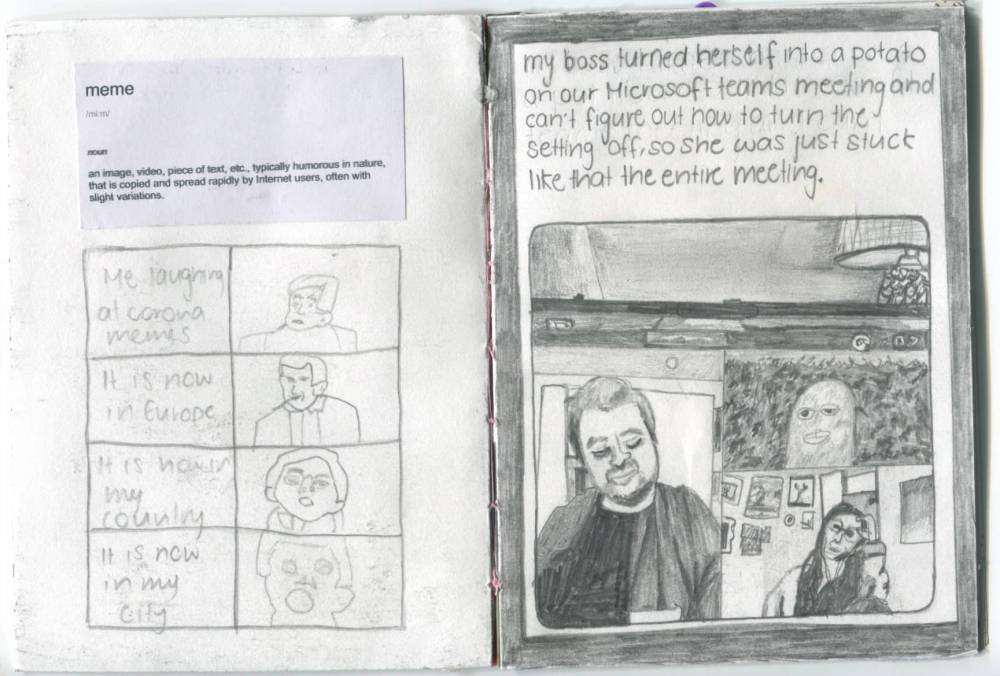 meme
/miːm/
noun
an image, video, piece of text, etc., typically humorous in nature,
that is copied and spread rapidly by Internet users, often with
slight variations.
Me laughing
at corona
memes
It is now
in Europe
It is now in
my
country
It is now
in my
city
my boss turned herself into a potato
on our Microsoft teams meeting and
can't figure out how to turn the
setting off, so she was just stuck
like that the entire meeting.